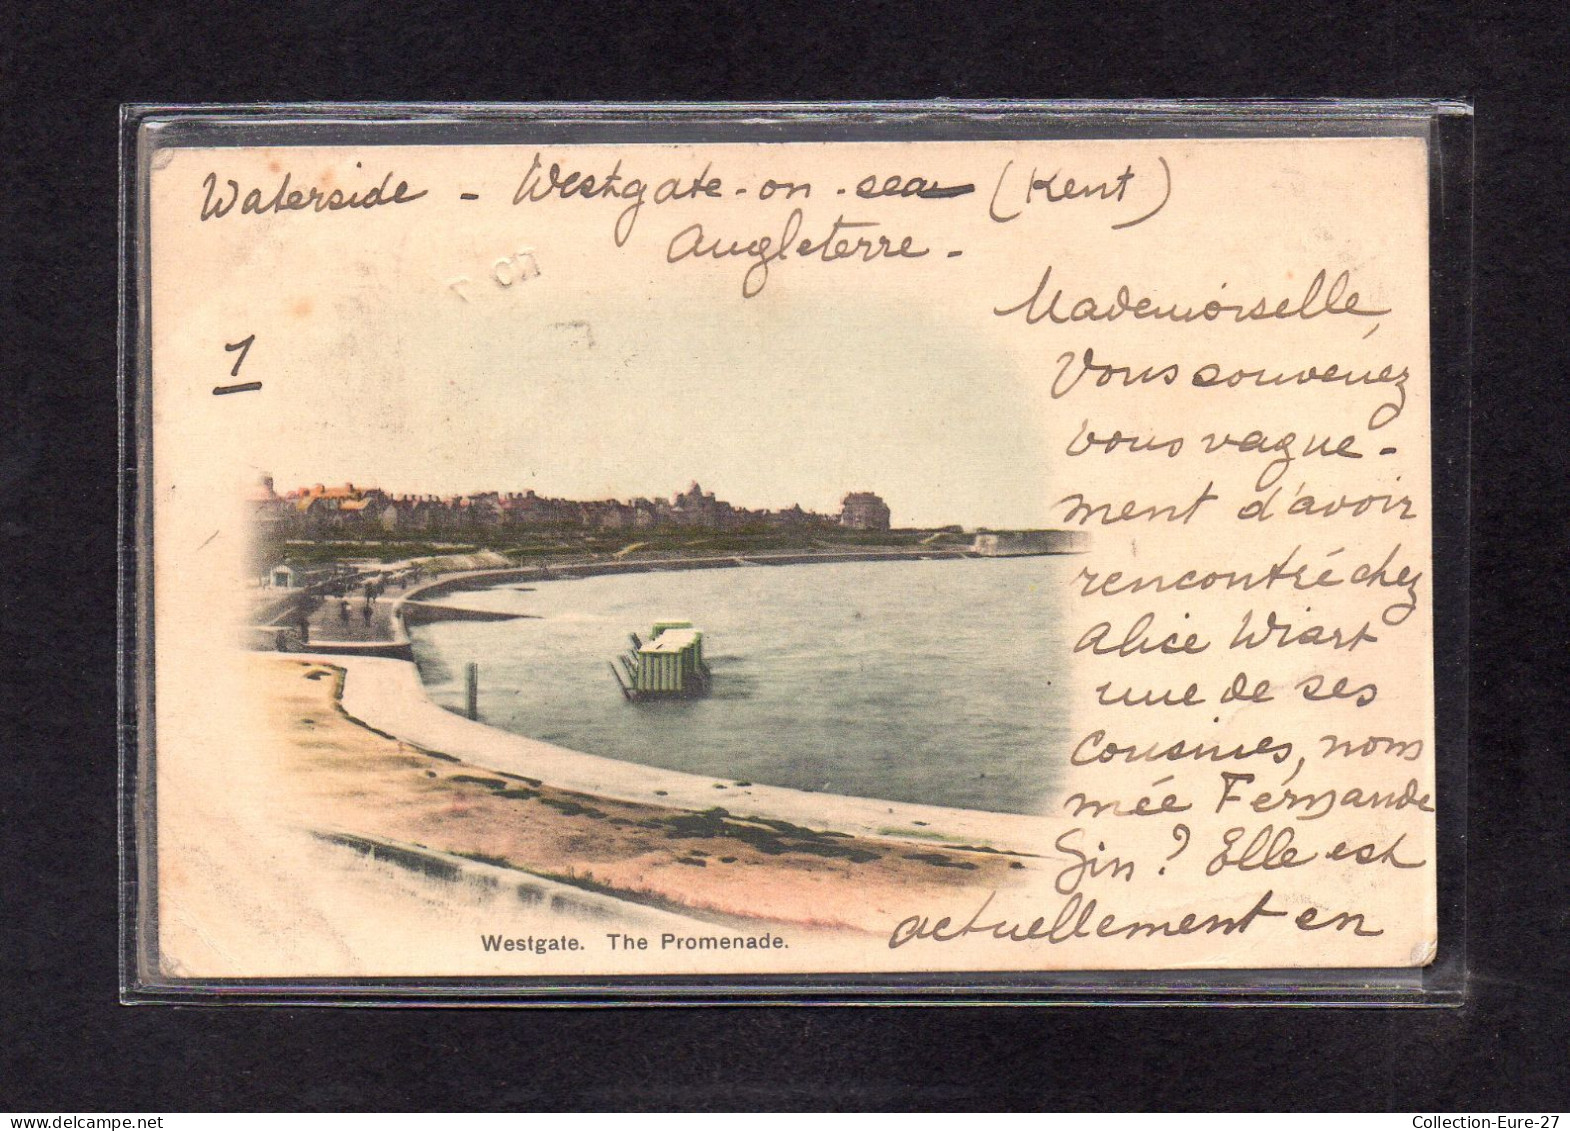 Waterside - Westgate-on-sea (Kent)
Angleterre -
1
Mademoiselle,
Vous souvenez
vous vague-
ment d'avoir
rencontré chez
Alice Wiart
une de ses
cousines, nom
mée Fernande
Gin? Elle est
actuellement en
Westgate. The Promenade.
Collection-Eure-27